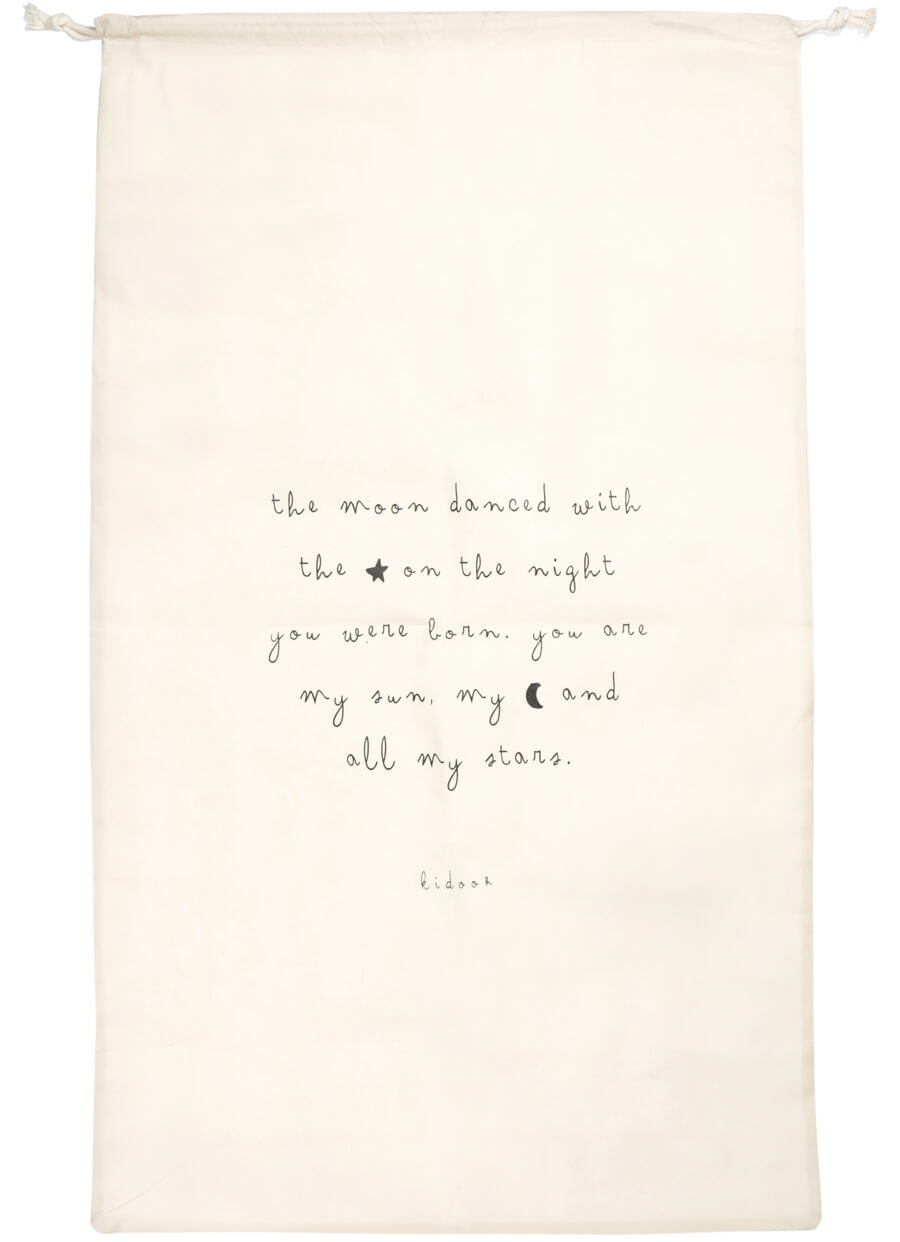 the moon danced with
the ★ on the night
you were born. you are
my sun, my ☾ and
all my stars.
kidooz